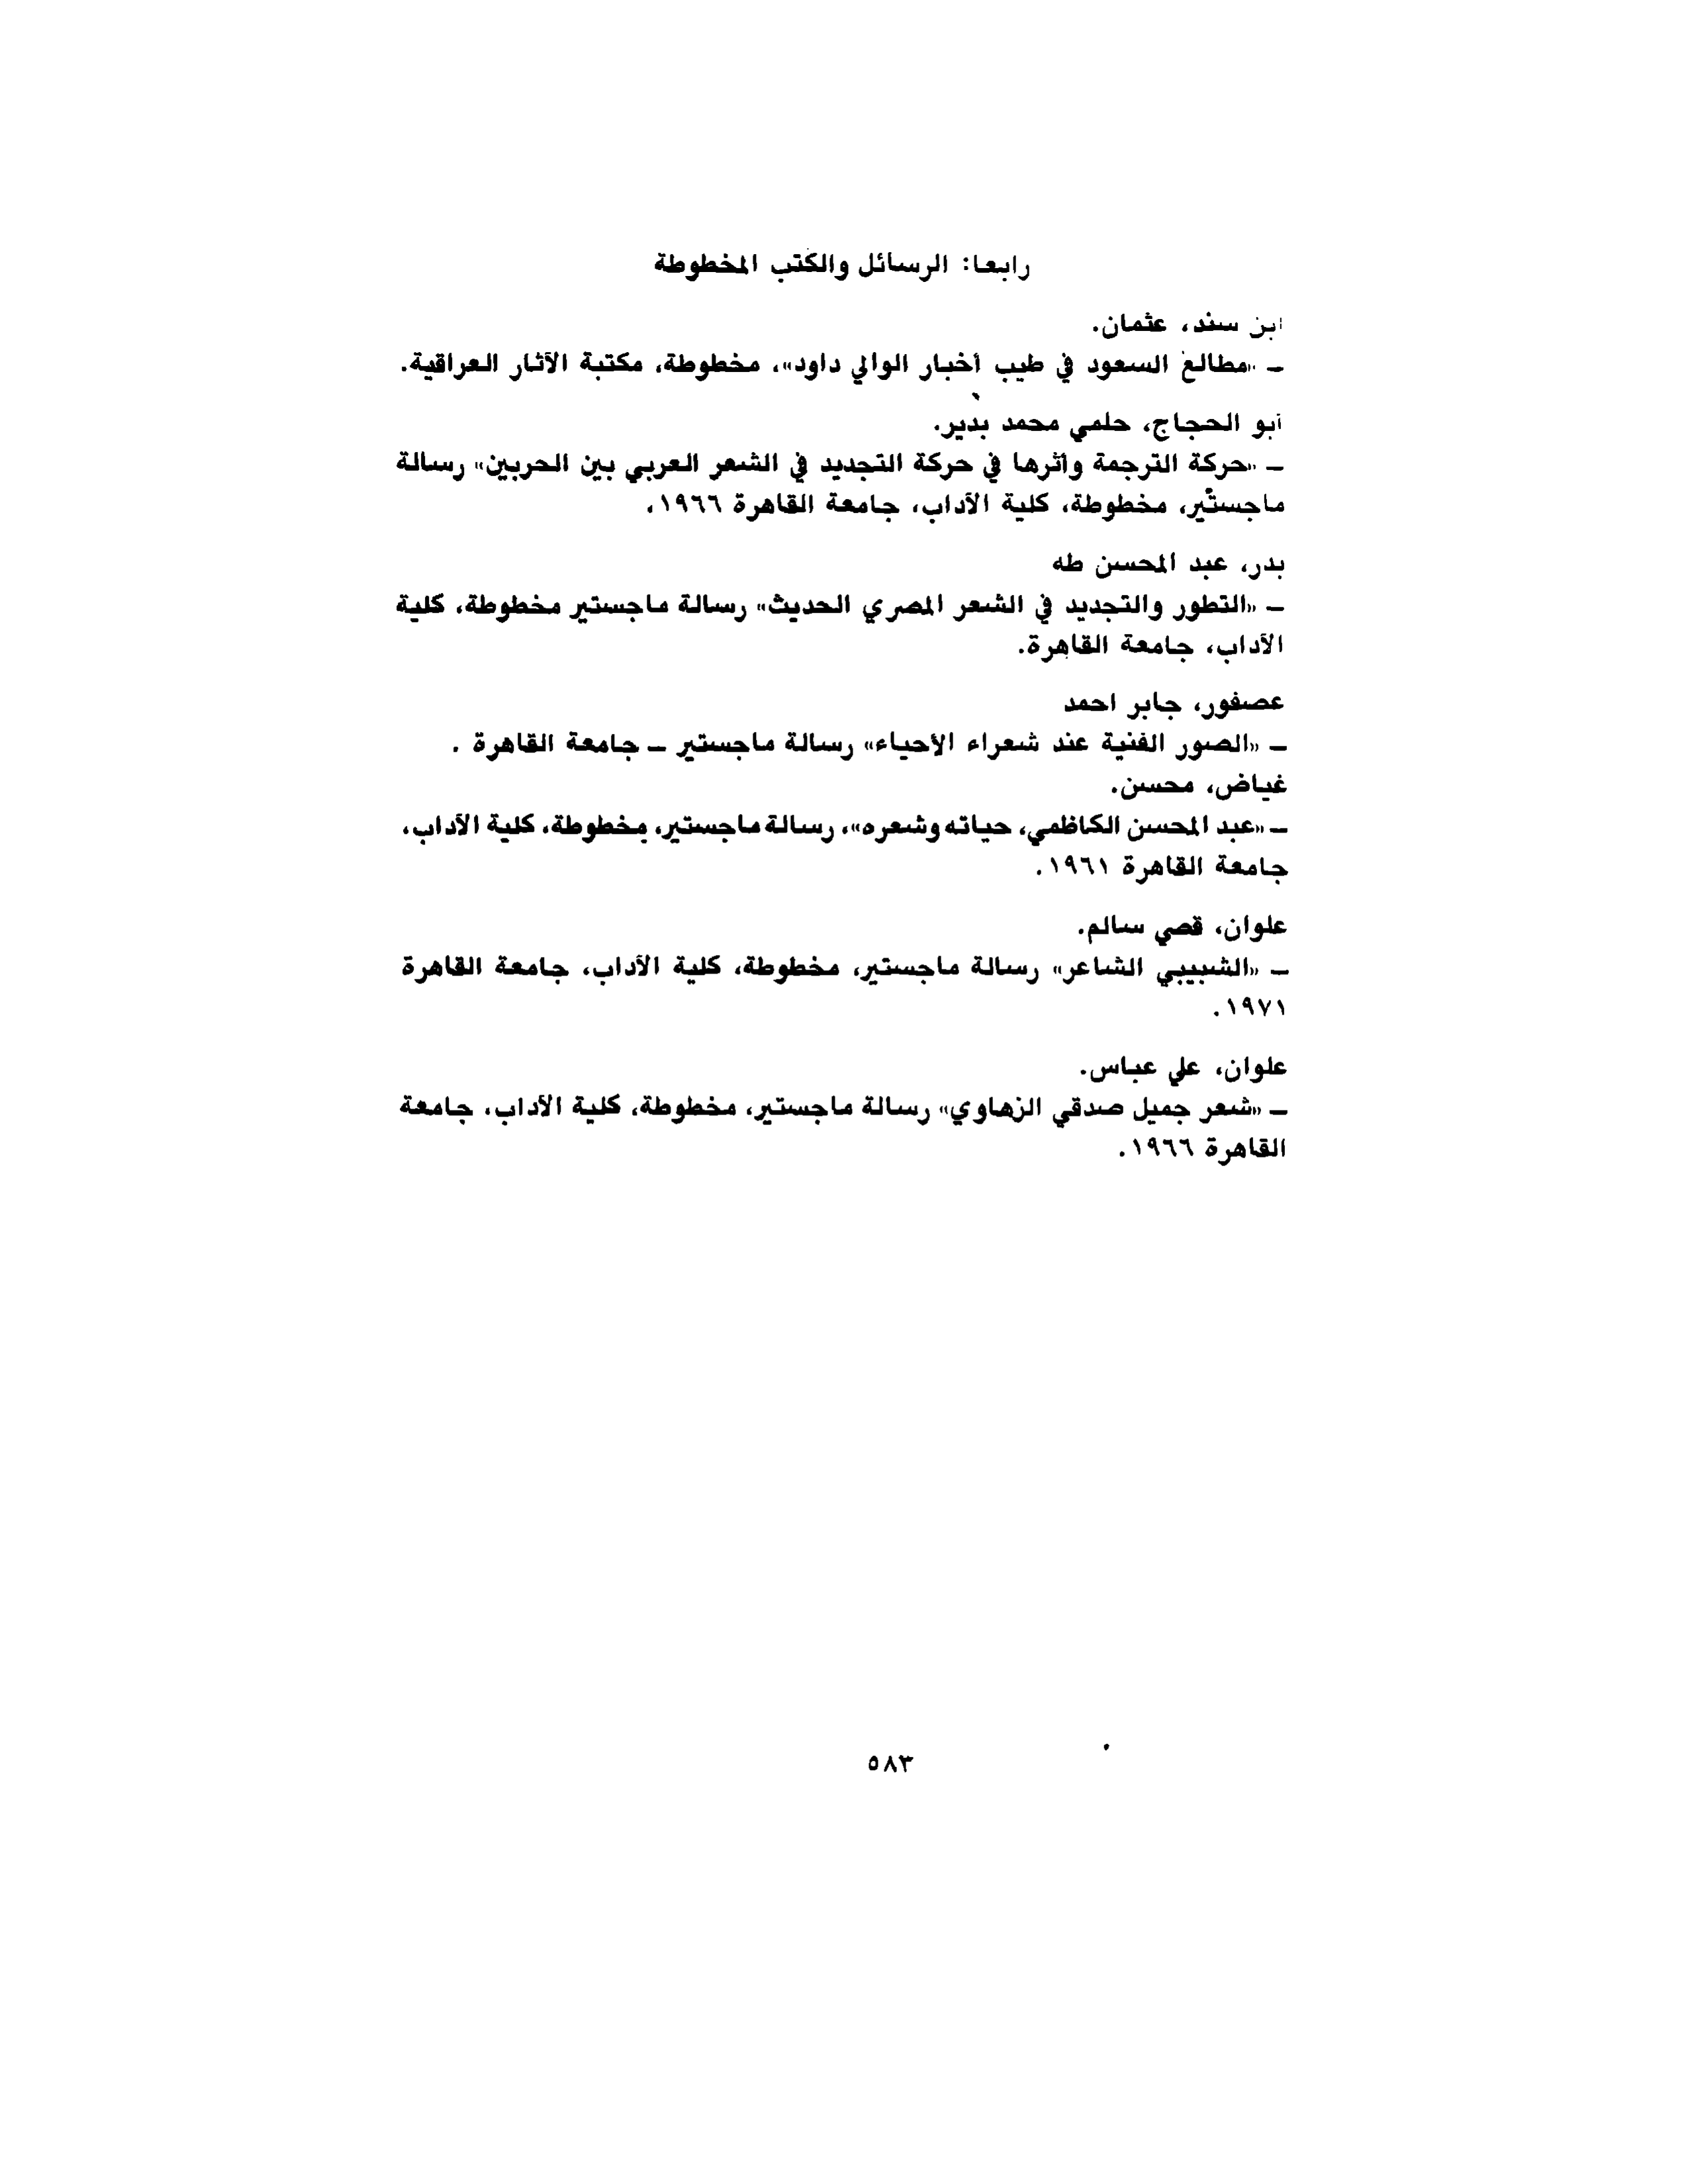 رابعا: الرسائل والكتب المخطوطة
ابن سند، عثمان.
ـ «مطالع السعود في طيب أخبار الوالي داود»، مخطوطة، مكتبة الآثار العراقية.
أبو الحجاج، حلمي محمد بدير.
ـ «حركة الترجمة وأثرها في حركة التجديد في الشعر العربي بين الحربين» رسالة
ماجستير، مخطوطة، كلية الآداب، جامعة القاهرة ١٩٦٦،
بدر، عبد المحسن طه
ـ «التطور والتجديد في الشعر المصري الحديث» رسالة ماجستير مخطوطة، كلية
الآداب، جامعة القاهرة.
عصفور، جابر احمد
ـ «الصور الفنية عند شعراء الأحياء» رسالة ماجستير ـ جامعة القاهرة .
غياض، محسن.
ـ «عبد المحسن الكاظمي، حياته وشعره»، رسالة ماجستير، مخطوطة، كلية الآداب،
جامعة القاهرة ١٩٦١.
علوان، قصي سالم.
ـ «الشبيبي الشاعر» رسالة ماجستير، مخطوطة، كلية الآداب، جامعة القاهرة
١٩٧١.
علوان، علي عباس.
ـ «شعر جميل صدقي الزهاوي» رسالة ماجستير، مخطوطة، كلية الآداب، جامعة
القاهرة ١٩٦٦.
٥٨٣